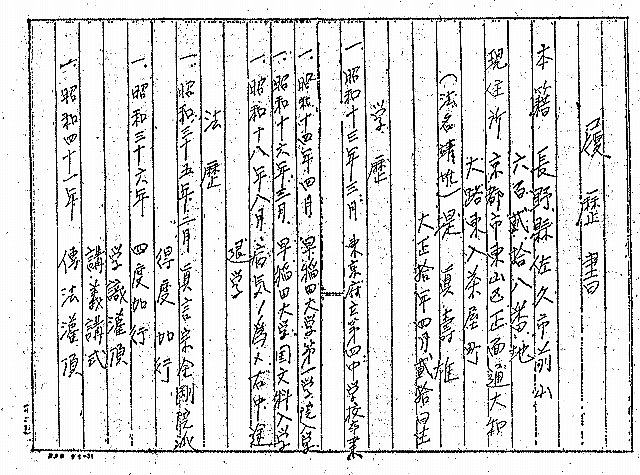 履歴書
本籍 長野縣佐久市前山
六百貳拾八番地
現住所 京都市東山区正面通大和
大路東入茶屋町
(法名晴雄)是真壽雄
大正拾年四月貳拾日生
学歴
一、昭和十三年三月 東京府立第四中学校卒業
一、昭和十四年四月 早稲田大学第一学院入学
一、昭和十六年三月 早稲田大学国文科入学
一、昭和十八年八月 病気ノ為メ右中途
退学
法歴
一、昭和三十五年三月 真言宗金剛院派
得度加行
一、昭和三十六年 四度加行
学識灌頂
講義講式
一、昭和四十一年 傳法灌頂